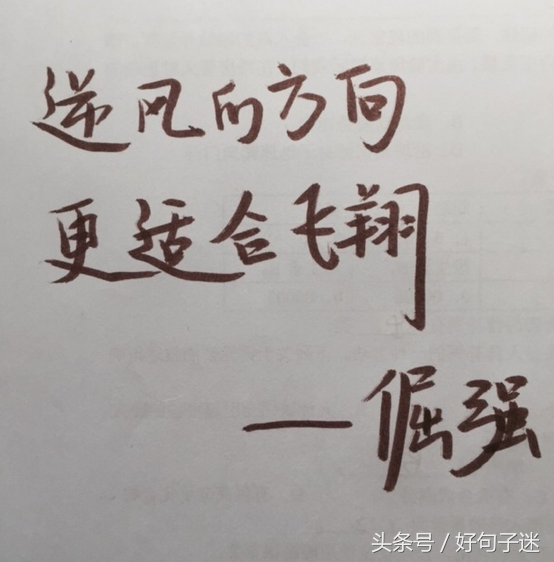 逆风的方向
更适合飞翔
—倔强
头条号／好句子迷